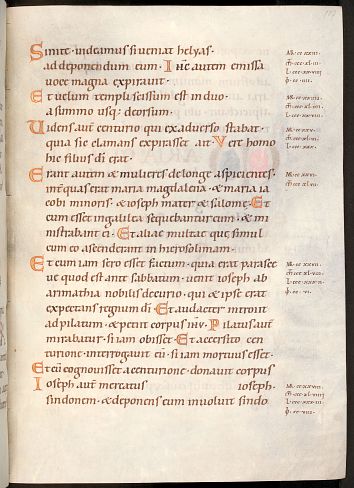 Sinite · uideamus si ueniat helyas ·
ad deponendum eum · Ihc autem emissa
uoce magna expirauit ·
Et uelum templi scissum est in duo ·
a summo usq; deorsum ·
Uidens aut centurio qui ex aduerso stabat ·
quia sic clamans expirasset · ait · Vere homo
hic filius di erat ·
Erant autem & mulieres de longe aspicientes ·
int quas erat maria magdalena · & maria ia
cobi minoris · & ioseph mater & salome · Et
cum esset in galilea sequebantur eum · & mi
nistrabant ei · Et aliae multae quae simul
cum eo ascenderant in hierosolimam ·
Et cum iam sero esset factum · quia erat parasce
ue quod est ante sabbatum · uenit ioseph ab
arimathia nobilis decurio · qui & ipse erat
expectans regnum di · Et audacter introiit
ad pilatum · & petiit corpus ihu · Pilatus aut
mirabatur · si iam obisset · Et accersito cen
turione · interrogauit eu · si iam mortuus esset ·
Et cu cognouisset a centurione · donauit corpus
Ioseph aut mercatus ioseph ·
sindonem · & deponens eum inuoluit sindo